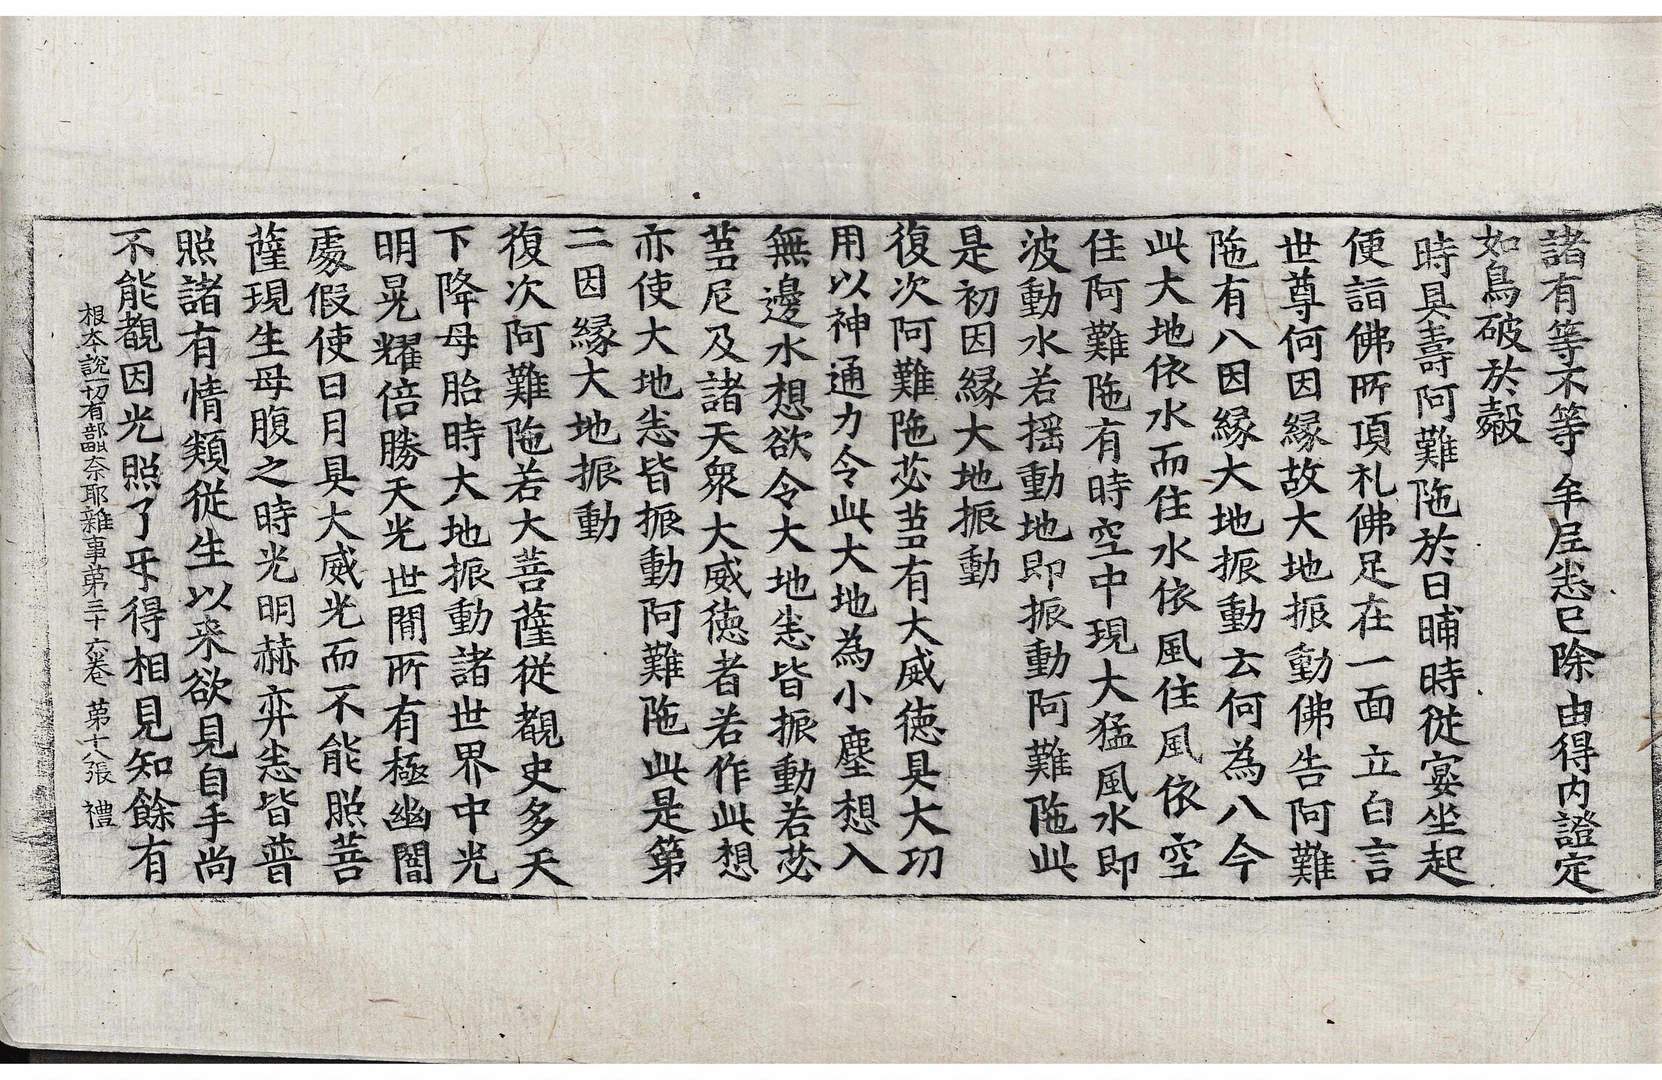 諸有等不等 牟尼悉已除 由得内證定
如鳥破於㲉
時具壽阿難陁於日晡時從宴坐起
便詣佛所頂礼佛足在一面立白言
世尊何因縁故大地振動佛告阿難
陁有八因縁大地振動云何為八今
此大地依水而住水依風住風依空
住阿難陁有時空中現大猛風水即
波動水若揺動地即振動阿難陁此
是初因縁大地振動
復次阿難陁苾蒭有大威徳具大功
用以神通力令此大地為小塵想入
無邊水想欲令大地悉皆振動若苾
蒭尼及諸天衆大威徳者若作此想
亦使大地悉皆振動阿難陁此是第
二因縁大地振動
復次阿難陁若大菩薩從覩史多天
下降母胎時大地振動諸世界中光
明晃耀倍勝天光世間所有極幽闇
處假使日月具大威光而不能照菩
薩現生母腹之時光明赫弈悉皆普
照諸有情類從生以来欲見自手尚
不能覩因光照了㸦得相見知餘有
根本說一切有部毗奈耶雜事第三十六卷 第十八張 禮